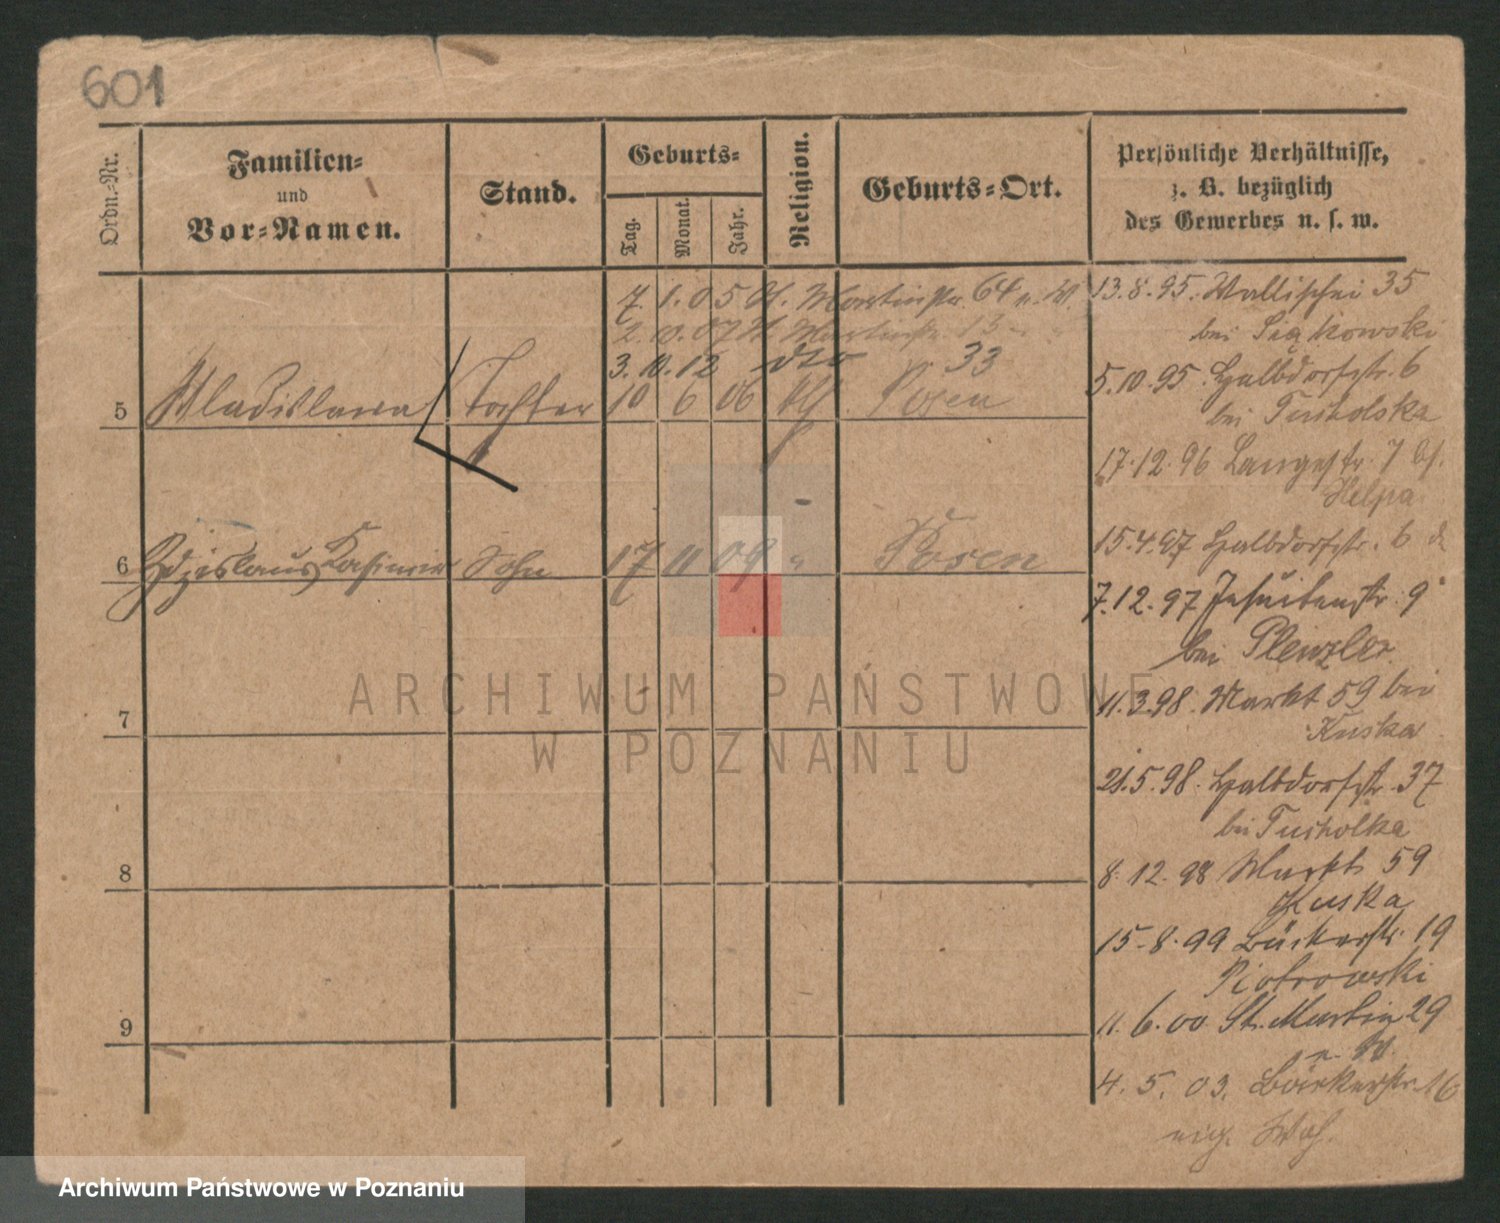 601
Ordn.-Nr.
Familien-
und
Vor-Namen.
Stand.
Geburts-
Tag.
Monat.
Jahr.
Religion.
Geburts-Ort.
Persönliche Verhältnisse,
z. B. bezüglich
des Gewerbes u. s. w.
7. 1. 05 St. Martinstr. 64 e. W.
2. 10. 07 St. Martinstr. 13
3. 10. 12 dto 33
5 Wladislawa Tochter 10 6 06 kth. Posen
6 Zdzislaus Kasimir Sohn 17 11 09 " Posen
7
8
9
13.8.95. Wallischei 35
bei
5.10.95. Halbdorfstr. 6
bei Tucholska
17.12.96 Langestr. 7 bei
Helpa
15.4.97 Halbdorfstr. 6
7.12.97 Jesuitenstr. 9
bei Plenzler
11.3.98. Markt 59 bei
Kuska
21.5.98. Halbdorfstr. 37
bei Tucholka
8.12.98 Markt 59
Kuska
15.8.99 Bäckerstr. 19
Piotrowski
11.6.00 St. Martin 29
e. W.
4. 5. 03. Bäckerstr. 16
eig. Whg.
ARCHIWUM PAŃSTWOWE
W POZNANIU
Archiwum Państwowe w Poznaniu